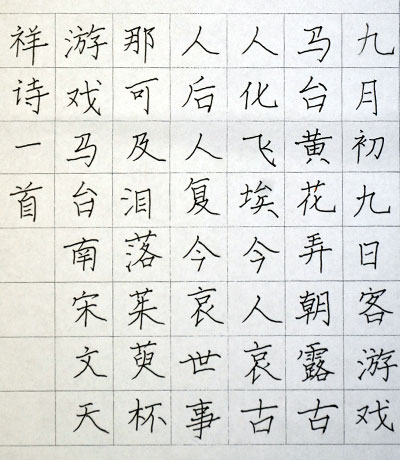 九月初九日客游戏
马台黄花弄朝露古
人化飞埃今人哀古
人后人复今哀世事
那可及泪落茱萸杯
游戏马台南宋文天
祥诗一首